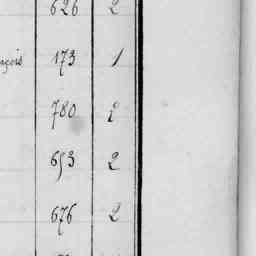 626 2
173 1
780 2
653 2
676 2